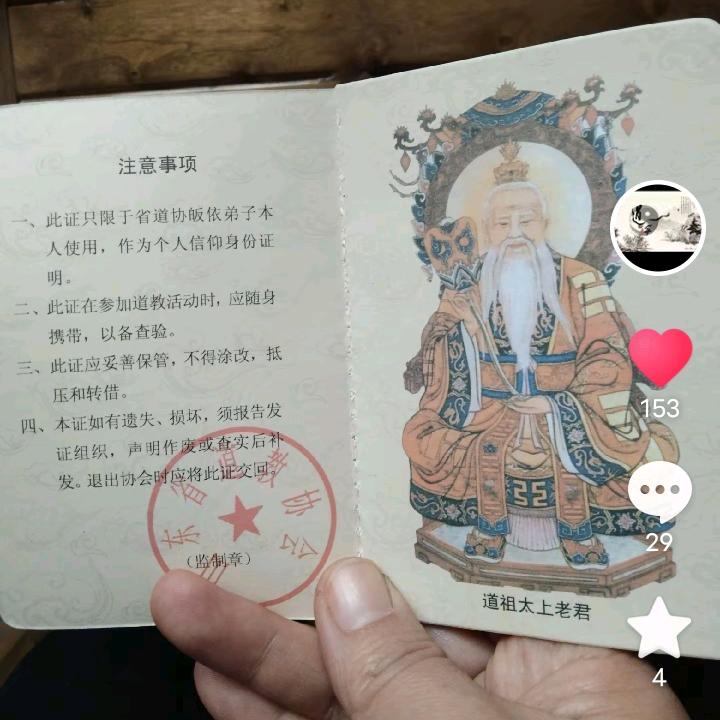 注意事项
一、此证只限于省道协皈依弟子本
人使用，作为个人信仰身份证
明。
二、此证在参加道教活动时，应随身
携带，以备查验。
三、此证应妥善保管，不得涂改，抵
压和转借。
四、本证如有遗失、损坏，须报告发
证组织，声明作废或查实后补
发。退出协会时应将此证交回。
东省道教协会
（监制章）
道祖太上老君
153
29
4